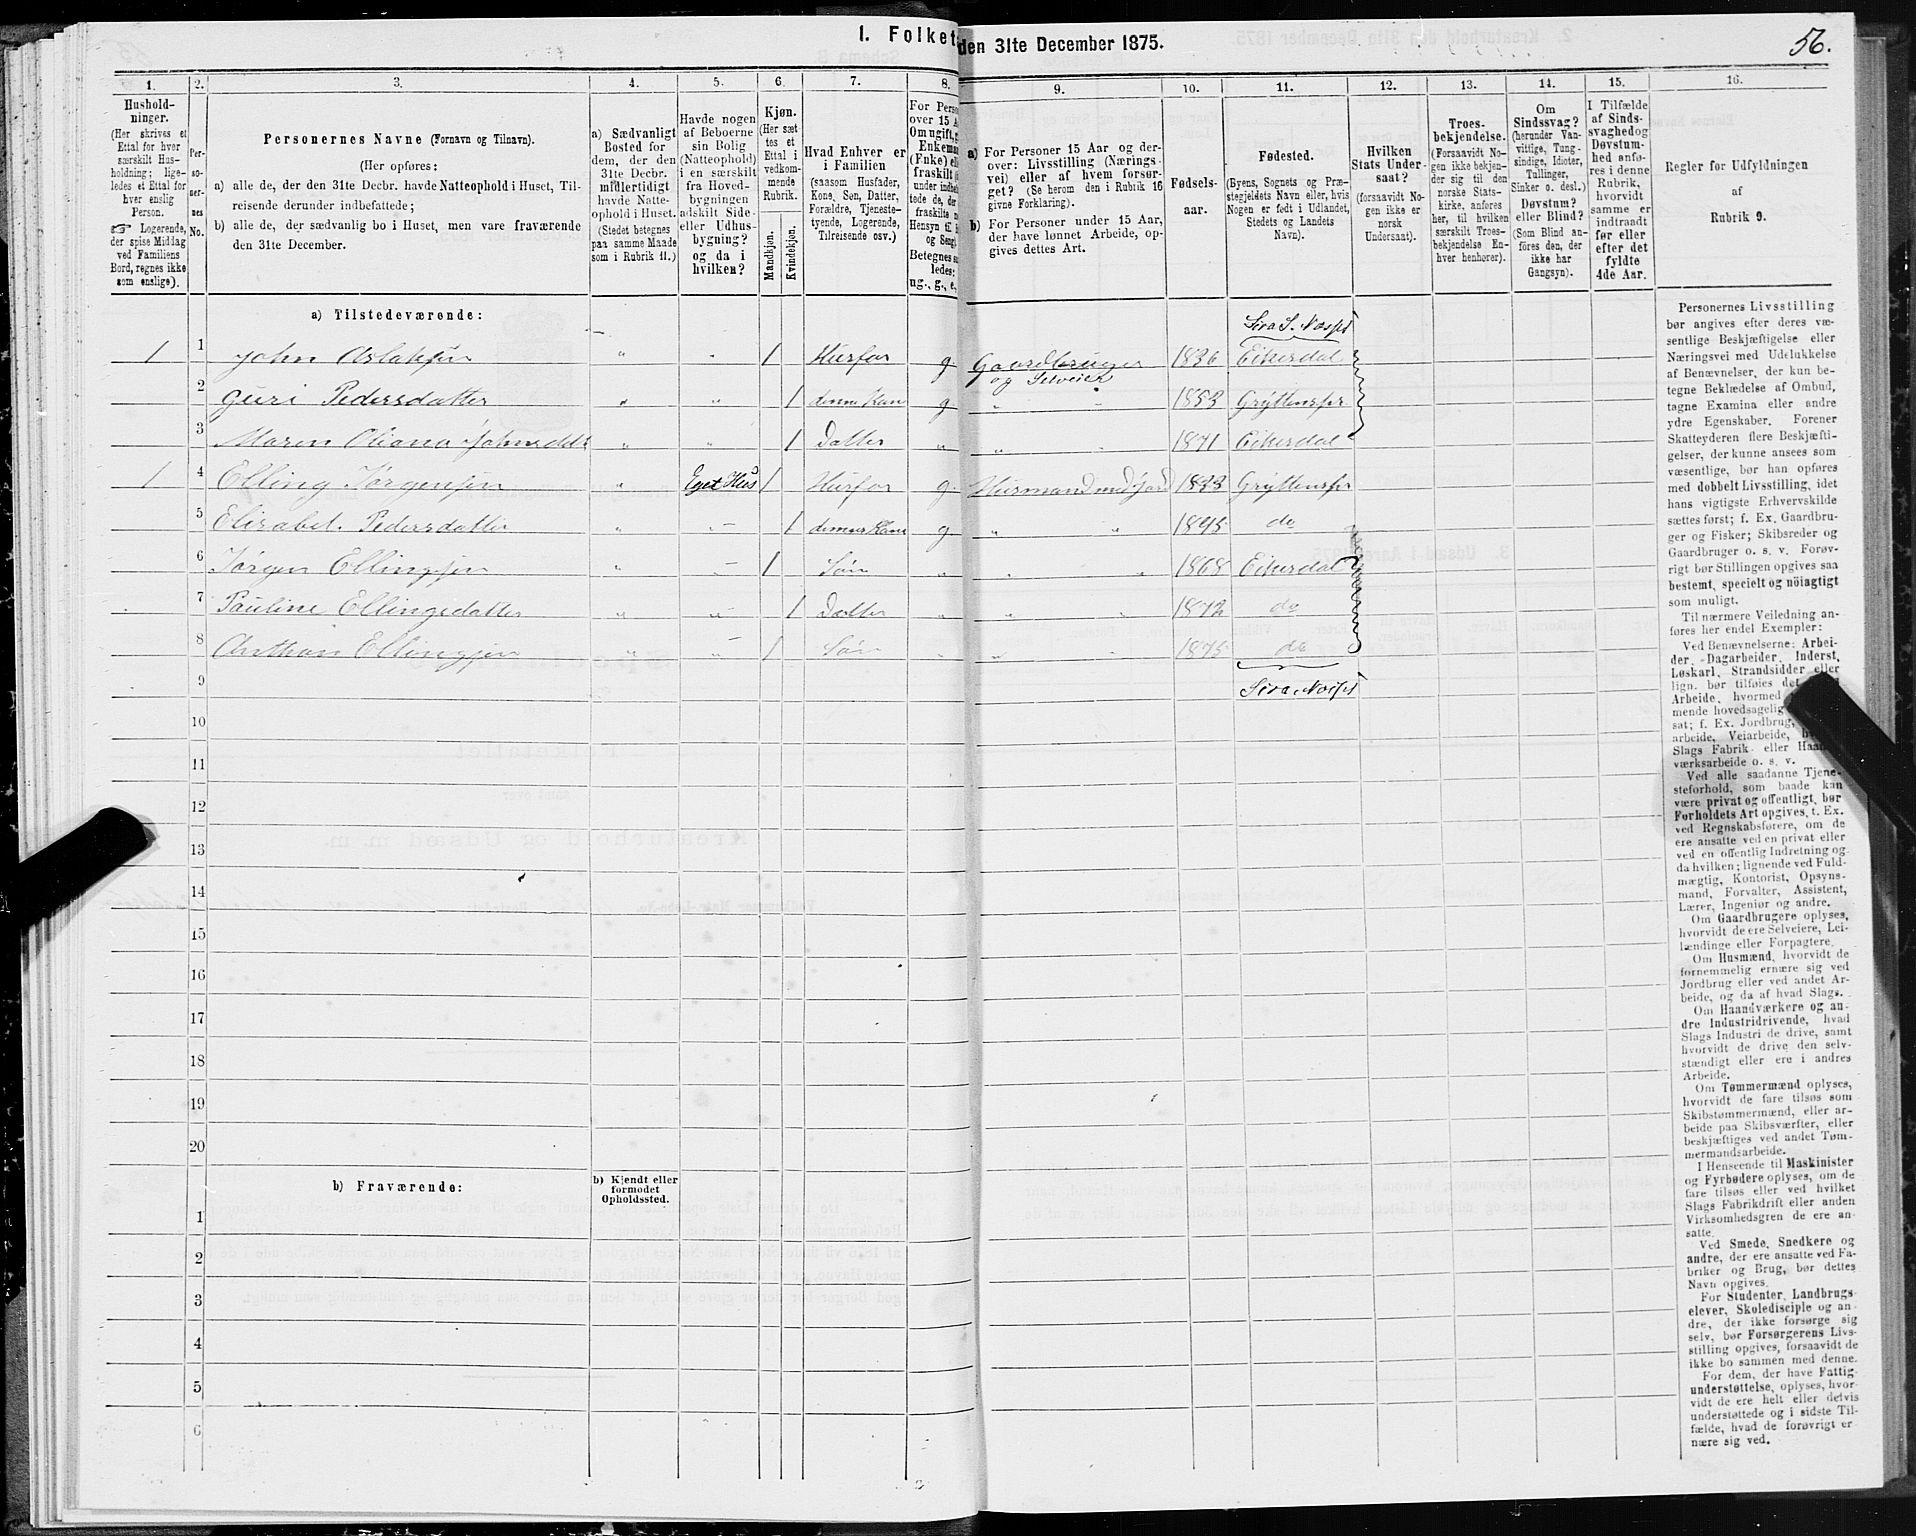 1. Folket
den 31te December 1875.
56.
1.
2.
3.
4.
5.
6.
7.
8.
9.
10.
11.
12.
13.
14.
15.
16.
Hushold-
ninger.
(Her skrives et
Ettal for hver
særskilt Hus-
holdning; lige-
ledes et Ettal for
hver enslig
Person.
☞ Logerende,
der spise Middag
ved Familiens
Bord, regnes ikke
som enslige).
Per-
so-
ner-
nes
No.
Personernes Navne (Fornavn og Tilnavn).
(Her opføres:
a) alle de, der den 31te Decbr. havde Natteophold i Huset, Til-
reisende derunder indbefattede;
b) alle de, der sædvanlig bo i Huset, men vare fraværende
den 31te December.
a) Sædvanligt
Bosted for
dem, der den
31te Decbr.
midlertidigt
havde Natte-
ophold i Huset.
(Stedet betegnes
paa samme Maade
som i Rubrik 11.)
Havde nogen
af Beboerne
sin Bolig
(Natteophold)
i en særskilt
fra Hoved-
bygningen
adskilt Side-
eller Udhus-
bygning?
og da i
hvilken?
Kjøn.
(Her sæt
tes et
Ettal i
vedkom-
mende
Rubrik.
Mandkjøn.
Kvindekjøn.
Hvad Enhver er
i Familien
(saasom Husfader,
Kone, Søn, Datter,
Forældre, Tjeneste-
tyende, Logerende,
Tilreisende osv.)
For Perso
over 15 A
Om ugift, g
Enkeman
(Fnke) el
fraskilt
under indbe
tede de, der
fraskilte
Hensyn til
og Seng
Betegnes s
ledes:
ug., g., e,
a) For Personer 15 Aar og der-
over: Livsstilling (Nærings
vei) eller af hvem forsør-
get? (Se herom den i Rubrik 16
givne Forklaring).
b) For Personer under 15 Aar,
der have lønnet Arbeide, op-
gives dettes Art.
Fødsels-
aar.
Fødested.
(Byens, Sognets og Præ-
stegjeldets Navn eller, hvis
Nogen er født i Udlandet,
Stedets og Landets
Navn).
Hvilken
Stats Under-
saat?
(forsaavidt No-
gen ikke er
norsk
Undersaat).
Troes-
bekjendelse.
(Forsaavidt No-
gen ikke bekjen-
der sig til den
norske Stats-
kirke, anføres
her, til hvilken
særskilt Troes-
bekjendelse En-
hver henhører).
Om
Sindssvag?
(herunder Van-
vittige, Tung-
sindige, Idioter,
Tullinger,
Sinker o. desl.)
Døvstum?
eller Blind?
(Som Blind an-
føres den, der
ikke har
Gangsyn).
I Tilfælde
af Sinds-
svaghed og
Døvstum-
hed anfø-
res i denne
Rubrik,
hvorvidt
samme er
indtraadt
før eller
efter det
fyldte
4de Aar.
Regler for Udfyldningen
af
Rubrik 9.
a) Tilstedeværende:
Sira S. Næsset
1 1 John Aslaksen " " 1 Husfar g. Gaardbruger 1836 Eikesdal
og Selveier
2 Guri Pedersdatter " " 1 dennes Kone g. " " 1853 Gryttenspr
3 Maren Oliana Johnsdatt " " 1 Datter " " " 1871 Eikesdal
1 4 Elling Jørgensen " Eget Hus 1 Husfar g. Husmand med jord 1833 Gryttenspr
5 Elisabet Pedersdatter " " 1 dennes Kone g " " 1845 do
6 Jørgen Ellingsen " " 1 Søn " " " 1868 Eikesdal
7 Pauline Ellingsdatter " " 1 Datter " " " 1872 do
8 Anthon Ellingsen " " 1 Søn " " " 1875 do
9 Sira, Næsset
10
11
12
13
14
15
16
17
18
19
20
b) Fraværende:
b) Kjendt eller
formodet
Opholdssted.
1
2
3
4
5
6
Personernes Livsstilling
bør angives efter deres væ-
sentlige Beskjæftigelse eller
Næringsvei med Udelukkelse
af Benævnelser, der kun be-
tegne Beklædelse af Ombud,
tagne Examina eller andre
ydre Egenskaber. Forener
Skatteyderen flere Beskjæfti-
gelser, der kunne ansees som
væsentlige, bør han opføres
med dobbelt Livsstilling, idet
hans vigtigste Erhvervskilde
sættes først; f. Ex. Gaardbru-
ger og Fisker; Skibsreder og
Gaardbruger o. s. v. Forøv-
rigt bør Stillingen opgives saa
bestemt, specielt og nöiagtigt
som muligt.
Til nærmere Veiledning an-
føres her endel Exempler:
Ved Benævnelserne: Arbei-
der, Dagarbeider, Inderst,
Løskarl, Strandsidder eller
lign. bør tilføies det
Arbeide, hvormed
mende hovedsagelig
sat; f. Ex. Jordbrug,
arbeide, Veiarbeide,
Slags Fabrik- eller Haand
værksarbeide o. s. v.
Ved alle saadanne Tjene-
steforhold, som baade kan
være privat og offentligt, bør
Førholdets Art opgives, t. Ex.
ved Regnskabsførere, om de
ere ansatte ved en privat eller
ved en offentlig Indretning og
da hvilken; lignende ved Fuld-
mægtig, Kontorist, Opsyns-
mand, Forvalter, Assistent,
Lærer, Ingeniør og andre.
Om Gaardbrugere oplyses,
hvorvidt de ere Selveiere, Lei-
lændinge eller Forpagtere.
Om Husmænd, hvorvidt de
fornemmelig ernære sig ved
Jordbrug eller ved andet Ar-
beide, og da af hvad Slags.
Om Haandværkere og an-
dre Industridrivende, hvad
Slags Industri de drive, samt
hvorvidt de drive den selv-
stændigt eller ere i andres
Arbeide.
Om Tømmermænd oplyses,
hvorvidt de fare tilsøs som
Skibstømmermænd, eller ar-
beide paa Skibsværfter, eller
beskjæftiges ved andet Tøm-
mermandsarbeide.
I Henseende til Maskinister
og Fyrbødere oplyses, om de
fare tilsøs eller ved hvilket
Slags Fabrikdrift eller anden
Virksomhedsgren de ere an-
satte.
Ved Smede, Snedkere og
andre, der ere ansatte ved Fa-
briker og Brug, bør dettes
Navn opgives.
For Studenter, Landbrugs-
elever, Skoledisciple og an-
dre, der ikke forsørge sig
selv, bør Forsørgerens Livs-
stilling opgives, forsaavidt de
ikke bo sammen med denne.
For dem, der have Fattig-
understøttelse, oplyses, hvor-
vidt de ere helt eller delvis
understøttede og i sidste Til-
fælde, hvad de forøvrigt er-
nære sig ved.